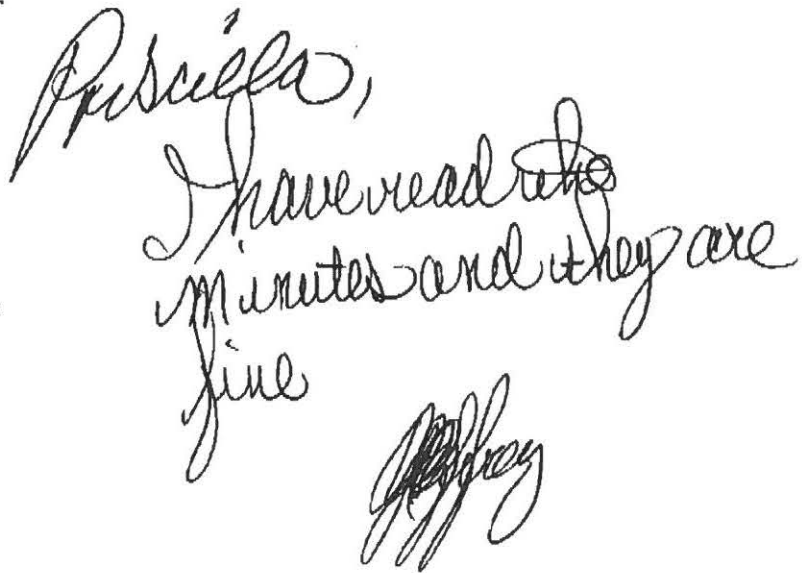 Priscilla,
I have read the
minutes and they are
fine
Jeffrey